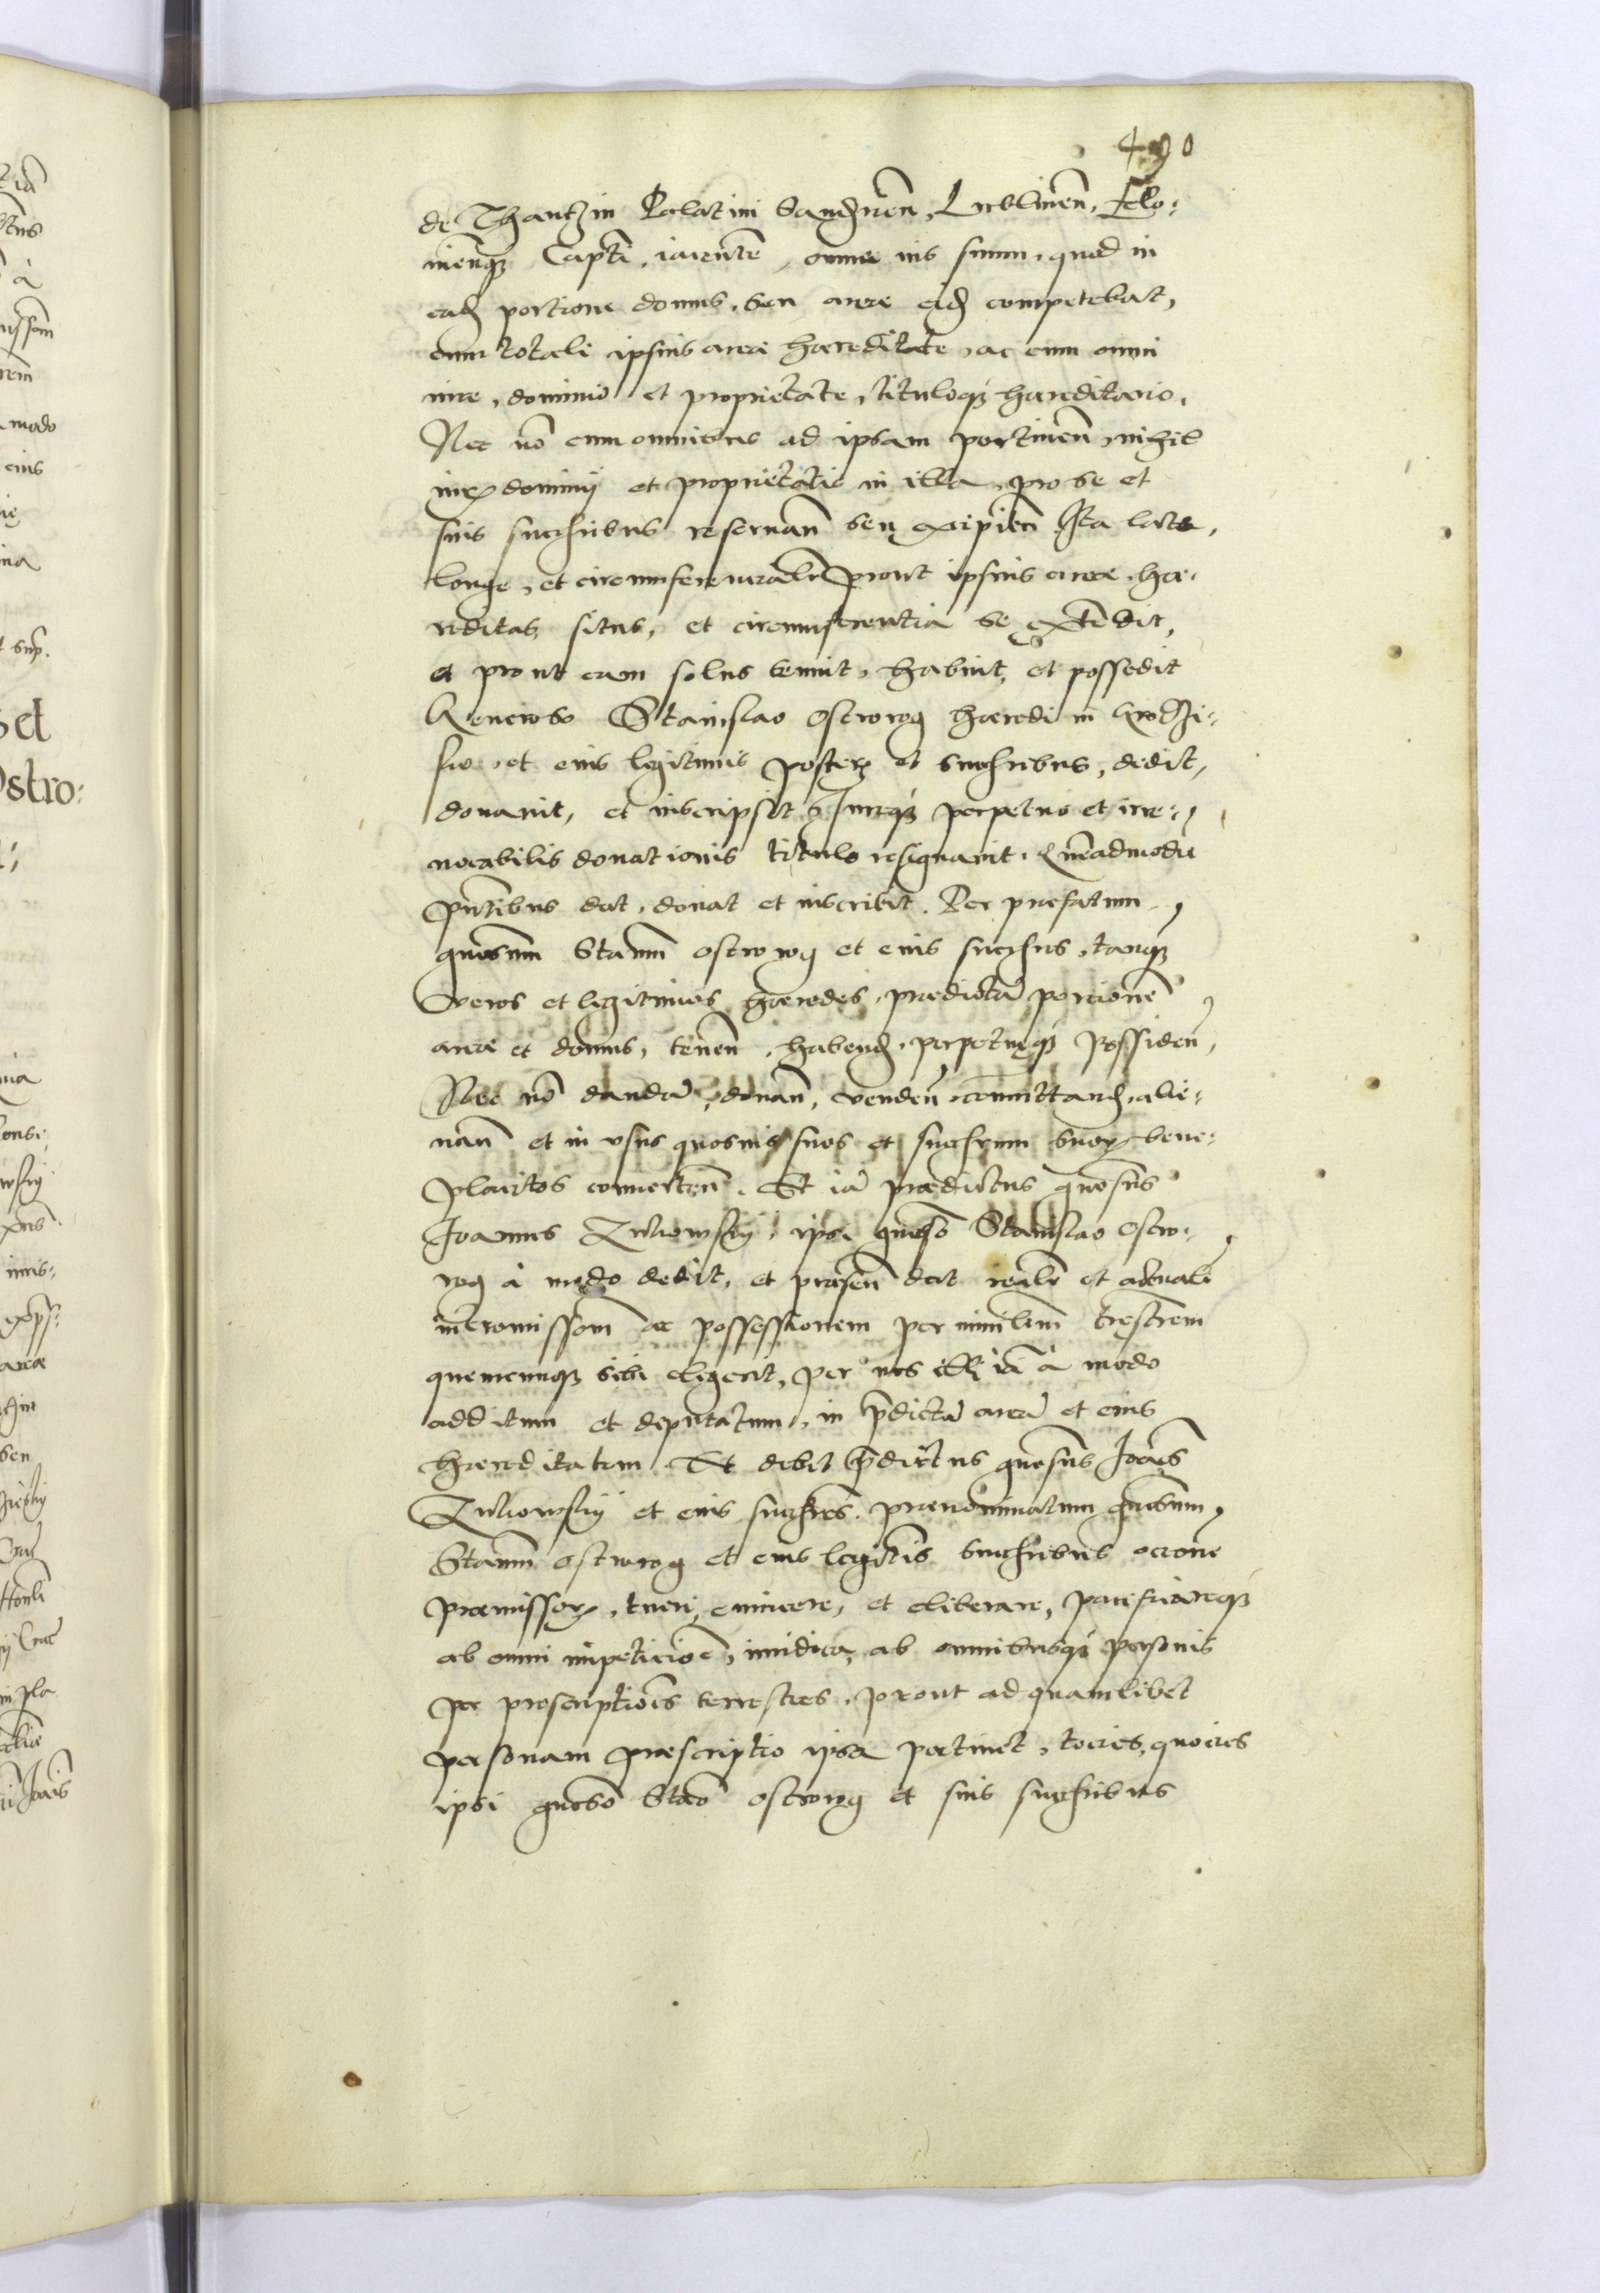 490
de Thantzin Palatini Sandmirien, Lublinen,
Capti, iacente, omne ius suum, quod in
eadem portione domus, seu areae eidem competebat,
cum totali ipsius areae haereditate, ac cum omni
iure, dominio et proprietate, tituloque haereditario,
Nec nō cum omnibus ad ipsam pertinen, nihil
iuris dominij et proprietatis in illa, pro se et
suis succhribus reseruan̄ seu excipien̄ Ita late,
longe, et circumferencialr prout ipsius areae, hae:
reditas, situs, et circumferentia se extēdit,
et prout eam solus tenuit, habuit, et possedit
Generoso Stanislao Ostrorog haeredi in
et eius legitimis poster et succhribus, dedit,
donauit, et inscripsit, iureque perpetuo et irre:
uocabilis donationis titulo resignauit. Quēadmodū
pn̄tibus dat, donat et inscribit. Per praefatum
gnosum Stanm̄ Ostrorog et eius succhres, tanque
veros et legitimos haeredes, praedictā portionē
areae et domus, tenen̄, habend, perpetueque possiden̄,
Nec nō dandā, donan̄, venden̄, committand, alie:
nan̄ et in vsus quosuis suos et succhrum suor bene:
placitos conuerten̄. Et iā praedictus gnosus
Joannes Zuliowskij, ipsi gnoso Stanislao Ostro:
rog à modo dedit, et praesen̄ dat realē et actualē
intromissom̄ ac possessionem per ministlm̄ trestrem
quemcunque sibi elegerit, per nos illi iā à modo
additum et deputatum, in p̄dictā areā et eius
haereditatem. Et debet p̄dictus gnosus Joan̄es
Zuliowskij et eius succhres, praenominatum gnosum,
Stanm̄ Ostrorog et eius legitīs succhribus occōne
praemissor, tueri, euincere, et eliberare, pacificareque
ab omni impeticiōe, iuridica, ab omnibusque personis
per proscriptiōes terrestres, prout ad quamlibet
personam praescriptio ipsa pertinet, tocies, quocies
ipsi gnoso Stāo Ostrorog et suis succhribus